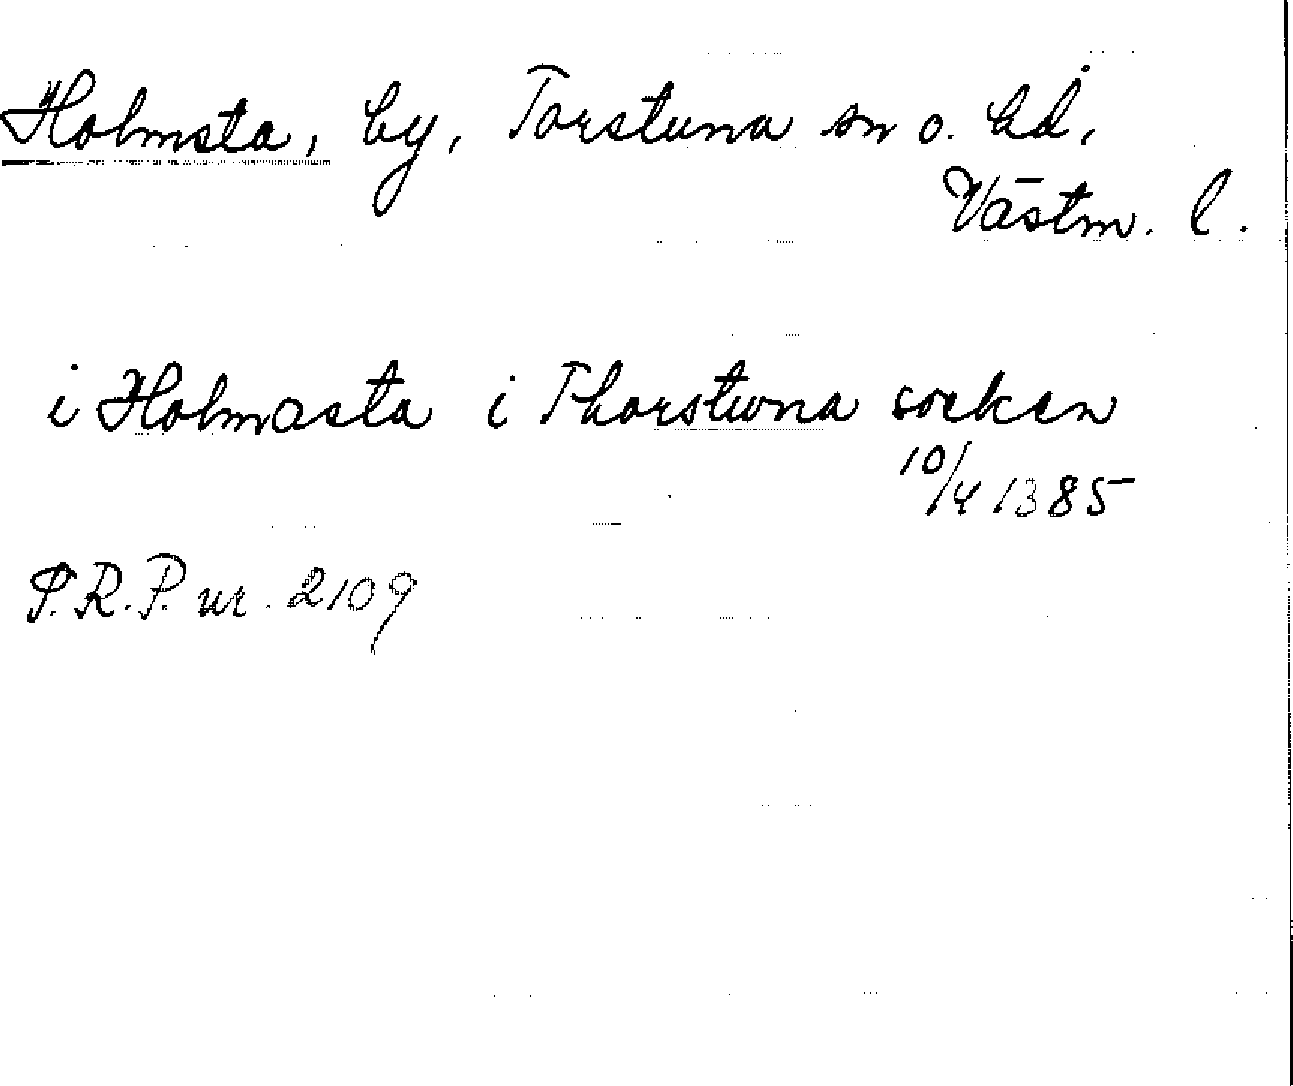 Holmsta, by, Torstuna sn o. hd,
Västm. l.
i Holmasta i Thorstuna socken
10/4 1385
P.R.P. nr. 2109